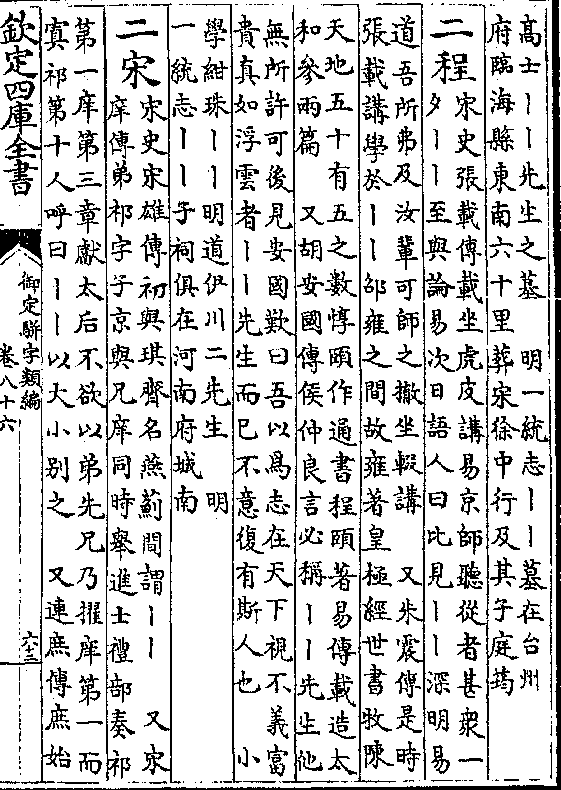 高士丨丨先生之墓　明一統志丨丨墓在台州
府臨海縣東南六十里葬宋徐中行及其子庭筠
二程
宋史張載傳載坐虎皮講易京師聽從者甚衆一
夕丨丨至與論易次日語人曰比見丨丨深明易
道吾所弗及汝輩可師之撤坐輟講　又朱震傳是時
張載講學於丨丨邵雍之間故雍著皇極經世書牧陳
天地五十有五之數惇頤作通書程頤著易傳載造太
和參兩篇　又胡安國傳侯仲良言必稱丨丨先生他
無所許可後見安國歎曰吾以爲志在天下視不義富
貴真如浮雲者丨丨先生而已不意復有斯人也　小
學紺珠丨丨明道伊川二先生　明
一統志丨丨子祠俱在河南府城南
二宋
宋史宋雄傳初與琪齊名燕薊間謂丨丨　又宋
庠傳弟祁字子京與兄庠同時舉進士禮部奏祁
第一庠第三章獻太后不欲以弟先兄乃擢庠第一而
寘祁第十人呼曰丨丨以大小别之　又連庶傳庶始
欽定四庫全書
御定駢字類編
卷八十六
六十三